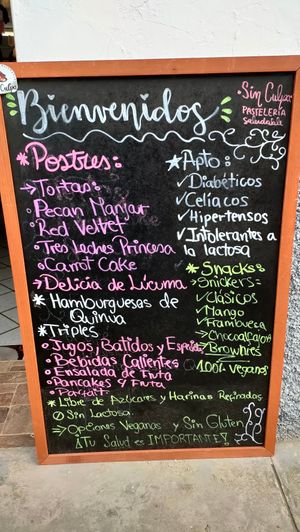 Culpa
Bienvenidos
• Sin Culpa
PASTELERÍA
Saludable
* Postres:
→ Tortas:
• Pecan Manjar
• Red Velvet
• Tres Leches Princesa
• Carrot Cake
→ Delicia de Lúcuma
* Hamburguesas de Quinua
* Triples
• Jugos, Batidos y
• Bebidas Calientes
• Ensalada de Fruta
• Pancakes y Fruta
• Parfait
* Apto:
✓ Diabéticos
✓ Celiacos
✓ Hipertensos
✓ Intolerantes a
la lactosa
* Snacks:
→ Snickers:
✓ Clásicos
✓ Mango
✓ Frambuesa
✓
→ Brownies
100% veganos
* Libre de Azúcares y Harinas Refinadas
Ø Sin Lactosa.
→ Opciones Veganas y Sin Gluten
¡Tu Salud es IMPORTANTE!